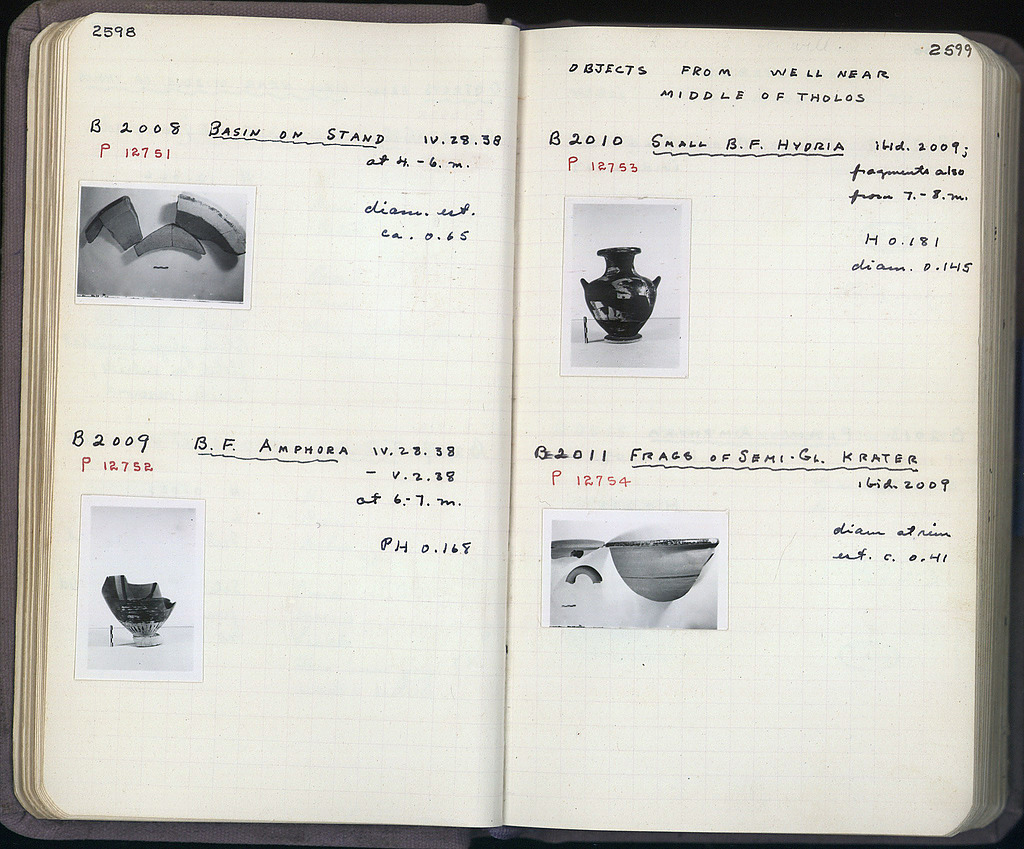 2598
B 2008 BASIN ON STAND IV.28.38
P 12751
at 4.-6. m.
diam. est.
ca. 0.65
B 2009 B.F. AMPHORA IV.28.38
P 12752
- V.2.38
at 6.-7. m.
PH 0.168
2599
OBJECTS FROM WELL NEAR
MIDDLE OF THOLOS
B 2010 SMALL B.F. HYDRIA ibid. 2009;
P 12753
fragments also
from 7.-8. m.
H 0.181
diam. 0.145
B 2011 FRAGS OF SEMI-GL. KRATER
P 12754
ibid. 2009
diam at rim
est. c. 0.41